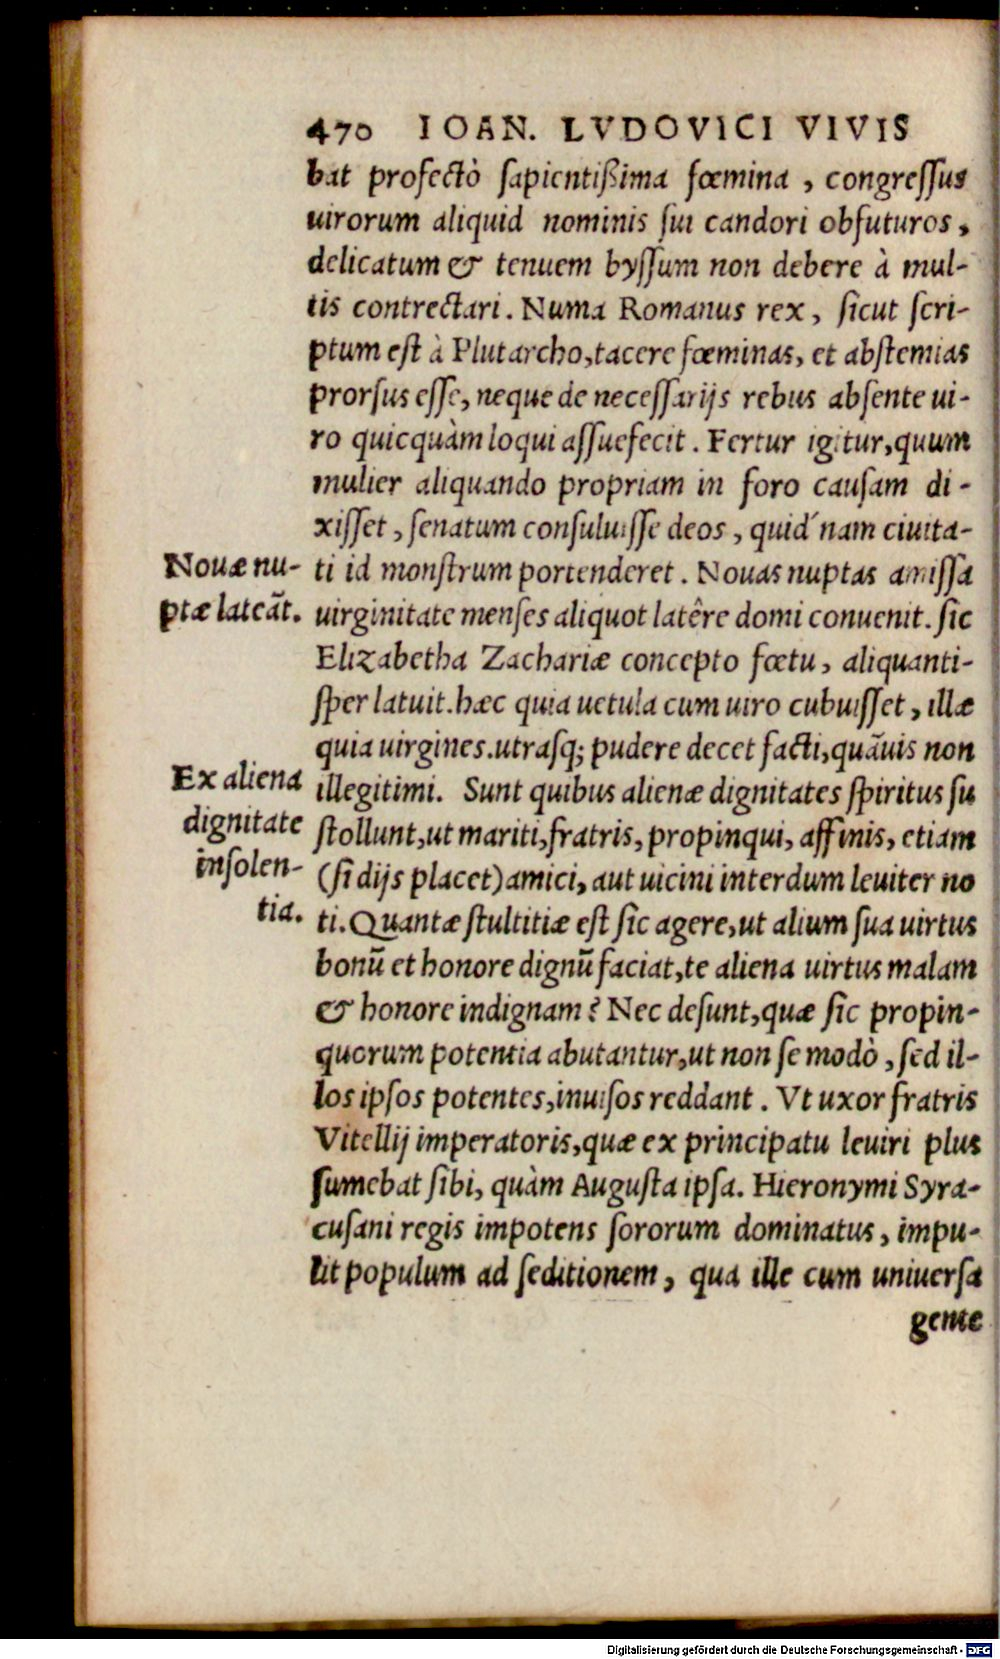 470 IOAN. LVDOVICI VIVIS
bat profectò sapientißima fœmina, congressus
uirorum aliquid nominis sui candori obfuturos,
delicatum & tenuem byssum non debere à mul-
tis contrectari. Numa Romanus rex, sicut scri-
ptum est à Plutarcho, tacere fœminas, et abstemias
prorsus esse, neque de necessarijs rebus absente ui-
ro quicquàm loqui assuefecit. Fertur igitur, quum
mulier aliquando propriam in foro causam di-
xisset, senatum consuluisse deos, quid´nam ciuita-
ti id monstrum portenderet. Nouas nuptas amissa
uirginitate menses aliquot latêre domi conuenit. sic
Elizabetha Zachariæ concepto fœtu, aliquanti-
sper latuit. hæc quia uetula cum uiro cubuisset, illæ
quia uirgines. utrasq; pudere decet facti, quãuis non
illegitimi. Sunt quibus alienæ dignitates spiritus su
stollunt, ut mariti, fratris, propinqui, affinis, etiam
(si dijs placet) amici, aut uicini interdum leuiter no
ti. Quantæ stultitiæ est sic agere, ut alium sua uirtus
bonũ et honore dignũ faciat, te aliena uirtus malam
& honore indignam? Nec desunt, quæ sic propin-
quorum potentia abutantur, ut non se modò, sed il-
los ipsos potentes, inuisos reddant. Vt uxor fratris
Vitellij imperatoris, quæ ex principatu leuiri plus
sumebat sibi, quàm Augusta ipsa. Hieronymi Syra-
cusani regis impotens sororum dominatus, impu-
lit populum ad seditionem, qua ille cum uniuersa
gente
Nouæ nu-
ptæ lateãt.
Ex aliena
dignitate
insolen-
tia.
Digitalisierung gefördert durch die Deutsche Forschungsgemeinschaft - DFG